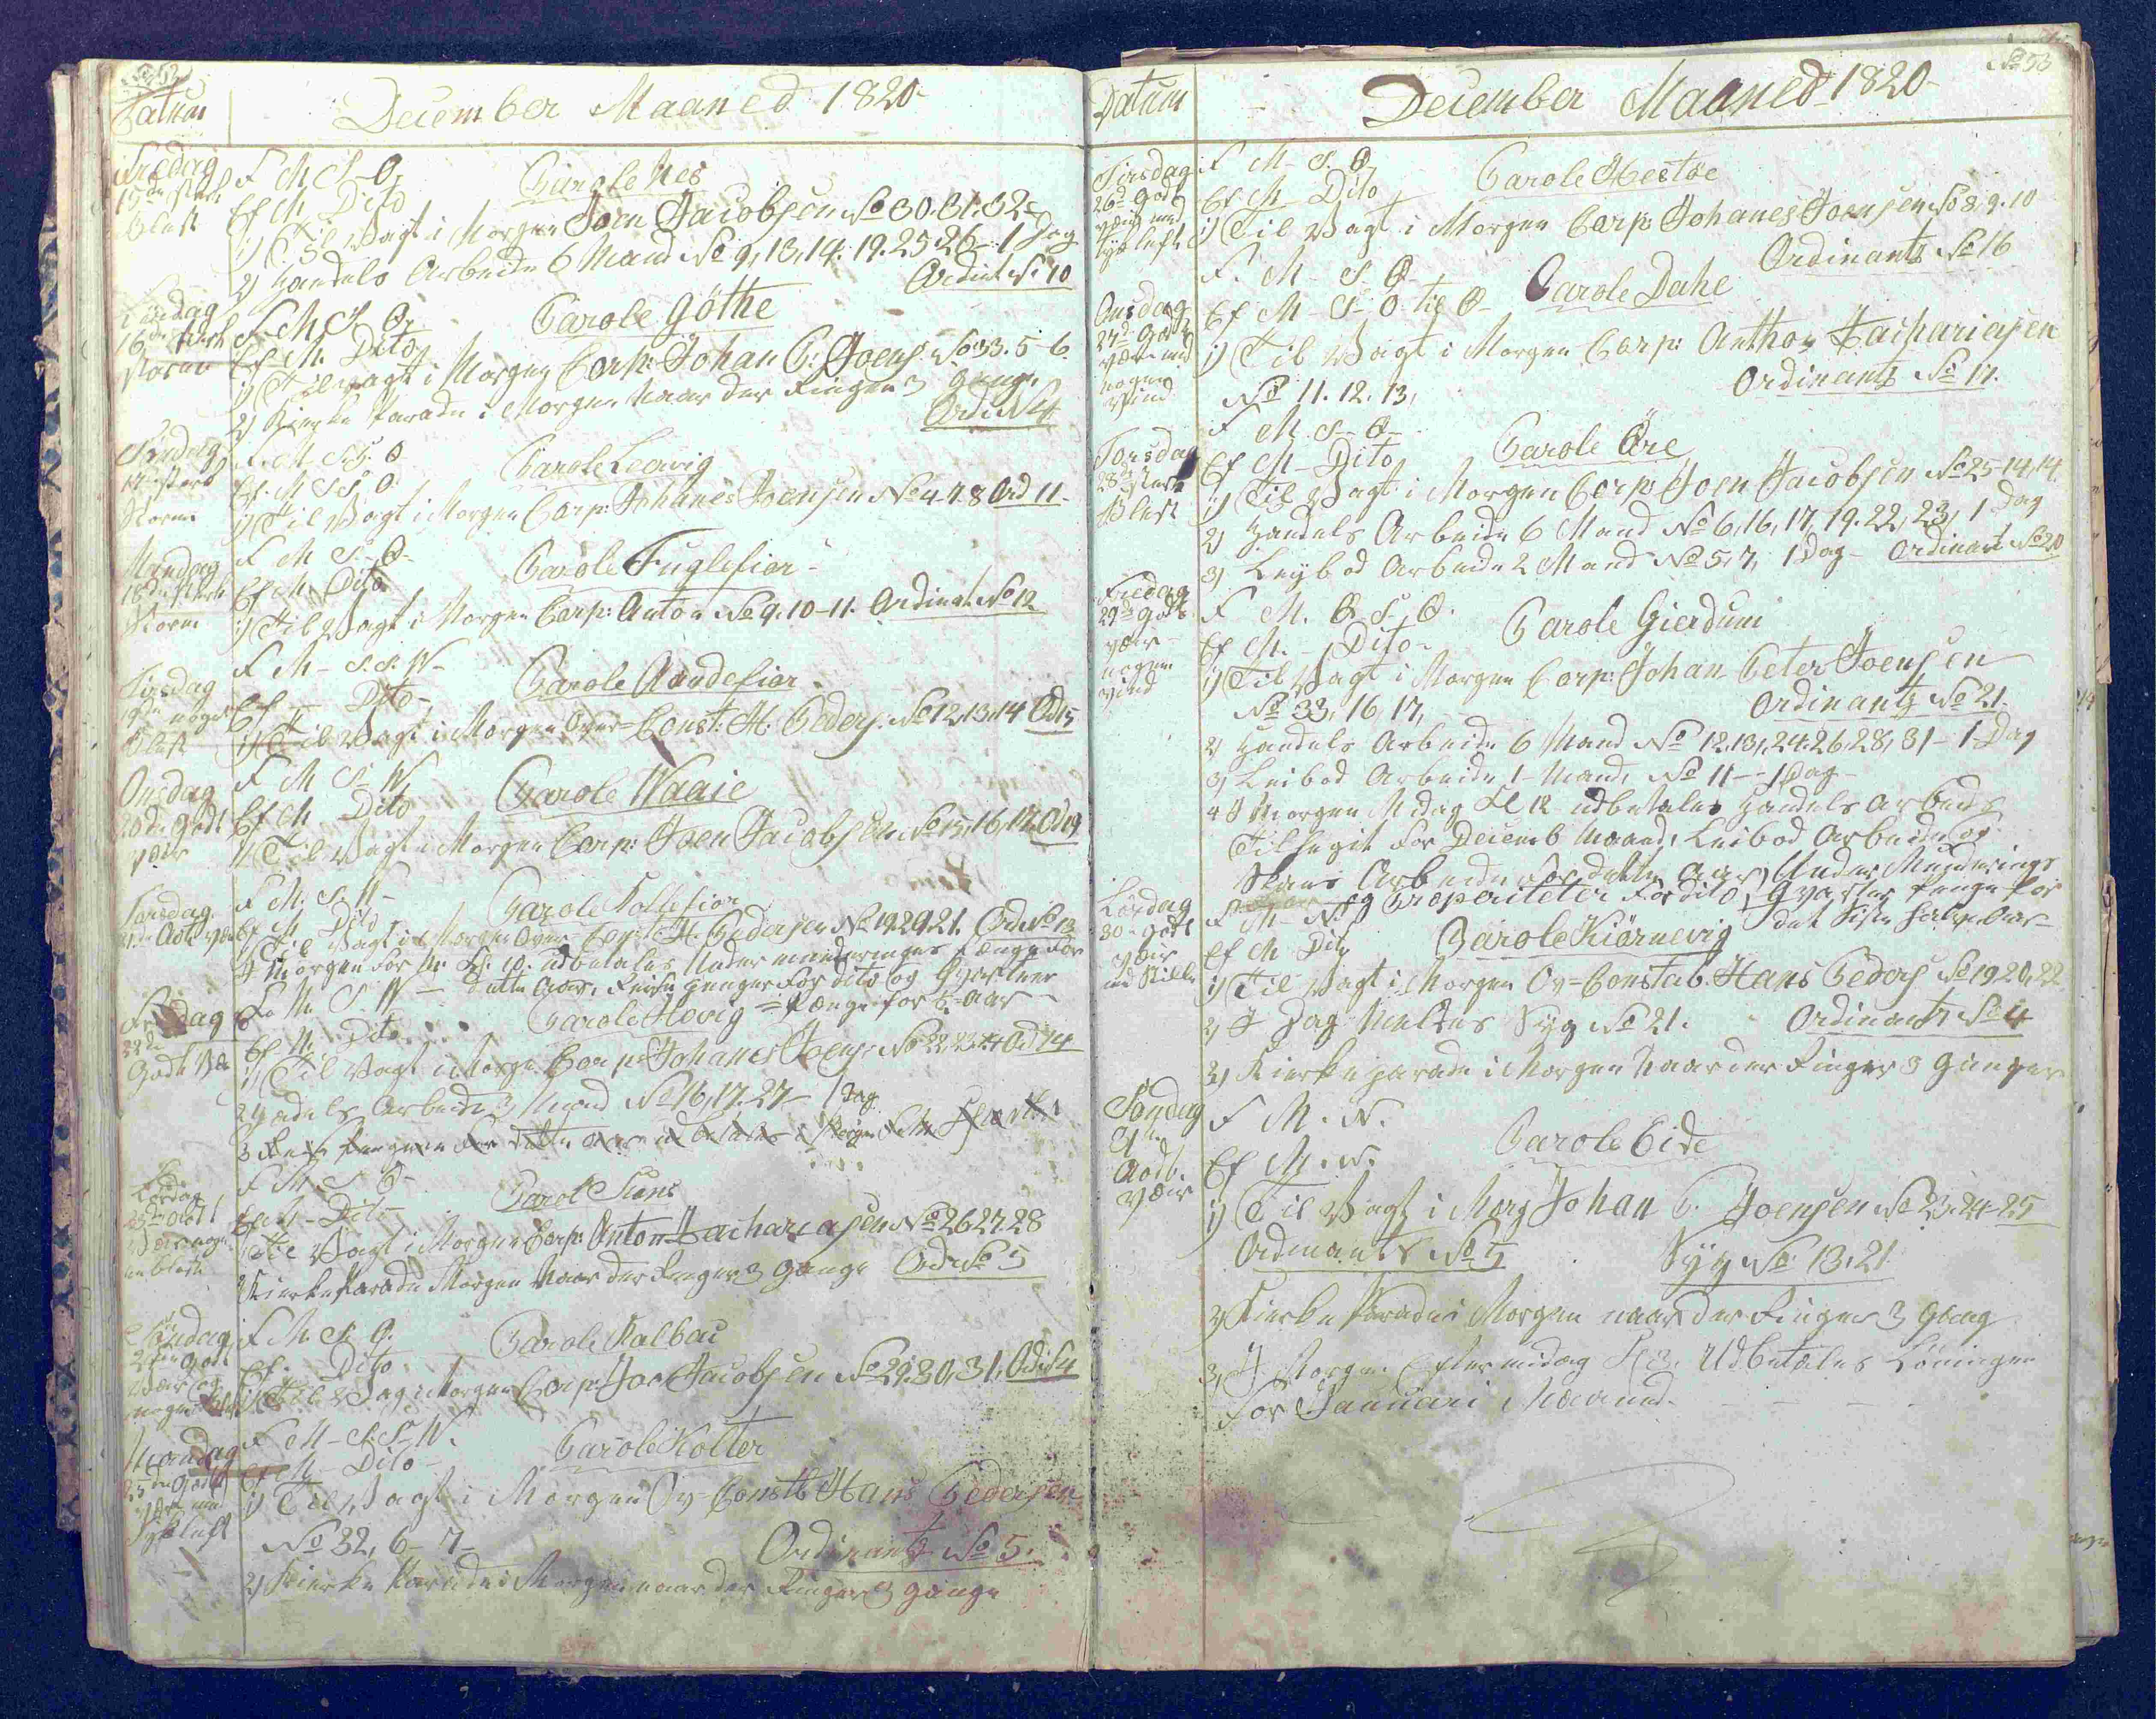 Datum
December Maaned 1820
Fredag
15de stærk
blæst
F M S-O
Ef M Dito
Parole Nes
1) Til Vagt i Morgen Joen Jacobsen No 30. 31. 32
2) Handels Arbeide 6 Mand No 9, 13, 14. 19. 25 26 - 1 Dag
Ordint No 10
16de stærk
storm
F M S O
Ef M. Dito
Parole Gøthe
1) Til Vagt i Morgen Corp: Johan P: Joens: No 33. 5-6
2) Kierke Parade i Morgen naar der Ringer 3 Gange
Ordi No 4
Søndag
17de stærk
Storm
F. M S. S. O
Ef. M S S O
Parole Leervig
1) Til Vagt i Morgen Corp: Johanes Joensen No 4. 7. 8 Ord 11-
Mandag
18de stærk
Storm
F M S-O-
Ef M. Dito
Parole Fuglefior
1) Til Vagt i Morgen Corp: Anton No 9. 10-11. Ordinat No 12
Tirsdag
19de nogen
blæst
F M- S. S. W-
Ef - Dito-
Parole Andefior
1) Til Vagt i Morgen Over-Const: H: Peders: No 12, 13, 14 Od 15
Onsdag
20de Godt
Veir
F M S- W
Ef M Dito
Parole Waaie
1) Til Vagt i Morgen Corp: Joen Jacobsen No 15, 16, 17
Torsdag
21de Godt Veir
F M. S. W-
Ef M Dito
Parole Kollefior
Til Vagt i Morgen Over Const H. Pedersen No 19 20 21. Ord No 13
I Morgen For M: Kl: 10. udbetales Under munderings Penge For
dette Aar,
F M. S W-
Fredag
22de
Godt Veir
Ef M. Dito
Parole Hovig
1) Til Vagt i Morgen Corp: Johanes Joens: No 22, 23, 24 Od 14
2 Handels Arbeide 3 Mand No 16, 17. 27- 1 Dag
Lørdag
23de Godt
F M S O-
Ef M- Dito-
Parol Suns
1) Til Vagt i Morgen Corp: Anton Zachariasen No 26 27 28
2) Kierke Parade i Morgen Naar der Ringer 3 Gange Od No 5
Søndag
24de Godt
Veir og
F M S O.
Ef. Dito
Parole Kalbac
1) Til Vagt i Morgen Corp: Joe Jacobsen No 29. 30, 31, Od: 4
Mandag
25de Godt
Tykluft
F M- S. S. W.
Ef M- Dito-
Parole Kolter
1) Til Vagt i Morgen Ov-Constb Hans Pedersen
No 32, 6- 7-
Ordinantz No 5.
2) Kierke Parade i Morgen naar der Ringer 3 Gange
No 53
Datum
December Maaned 1820-
Tirsdag
26de Godt
veir med
tykluft
F M- S. O
Ef M Dito
Parole Hestøe
1) Til Vagt i Morgen Corp: Johanes Joensen No 8, 9. 10
Ordinantz No 16
Onsdag
27de Godt
Veir med
nogen
Vind
F. M- S O
Ef M- S- O til O
Parole Dahl
1) Til Vagt i Morgen Corp: Anthon Zachariasen
No 11. 12. 13,
Ordinantz No 17.
Torsdag
28de stærk
Blæst
F M S- O-
Ef M- Dito
Parole Øre
1) Til Vagt i Morgen Corp: Joen Jacobsen No 25-14, 14.
2) Handels Arbeide 6 Mand No 6, 16, 17, 19. 22, 23, 1 Dag
3) Leybod Arbeide 2 Mand No 5, 7, 1 Dag- Ordinant No 20
Fredag
29de Godt
veir-
nogen
vind
F M. O S- O.
Ef M. - Dito-
Parole Gierdum
1) Til Vagt i Morgen Corp: Johan Peter Joensen
No 33, 16, 17,
Ordinantz No 21.
2 Handels Arbeide 6 Mand No 12, 13, 24. 26, 28, 31- 1 Dag
3) Leibod Arbeide 1- Mand, No 11-- 1 Dag-
4 I Morgen Midag Kl 12 udbetales Handels Arbeids
For Decemb Maaned, Leibod Arbeide og
Skans Arbeide For dette Aar, Under Munderings
det siste halve Aar-
Lørdag
30de Godt
Veir
F M- N.
Ef M Dito
Parole Kiørnevig
1) Til Vagt i Morgen Ov-Constab. Hans Peders No 19 20, 22
2) I Dag Meldes Syg No 21. Ordinantz No 4
3) Kierkeparade i Morgen Naar der Ringer 3 Ganger
Søndag
31te
Godt
Veir
F M. N.
Ef M. N.
Parole Eide
1) Til Vagt i Morg Johan P. Joensen No 23. 24-25
Ordinantz No 5
Syg No: 13. 21.
2) Kierke Parade i Morgen naar der Ringer 3 Gang
3) I Morgen Eftermidag Kl 3. Udbetales Løningen
For Januari Maaned.